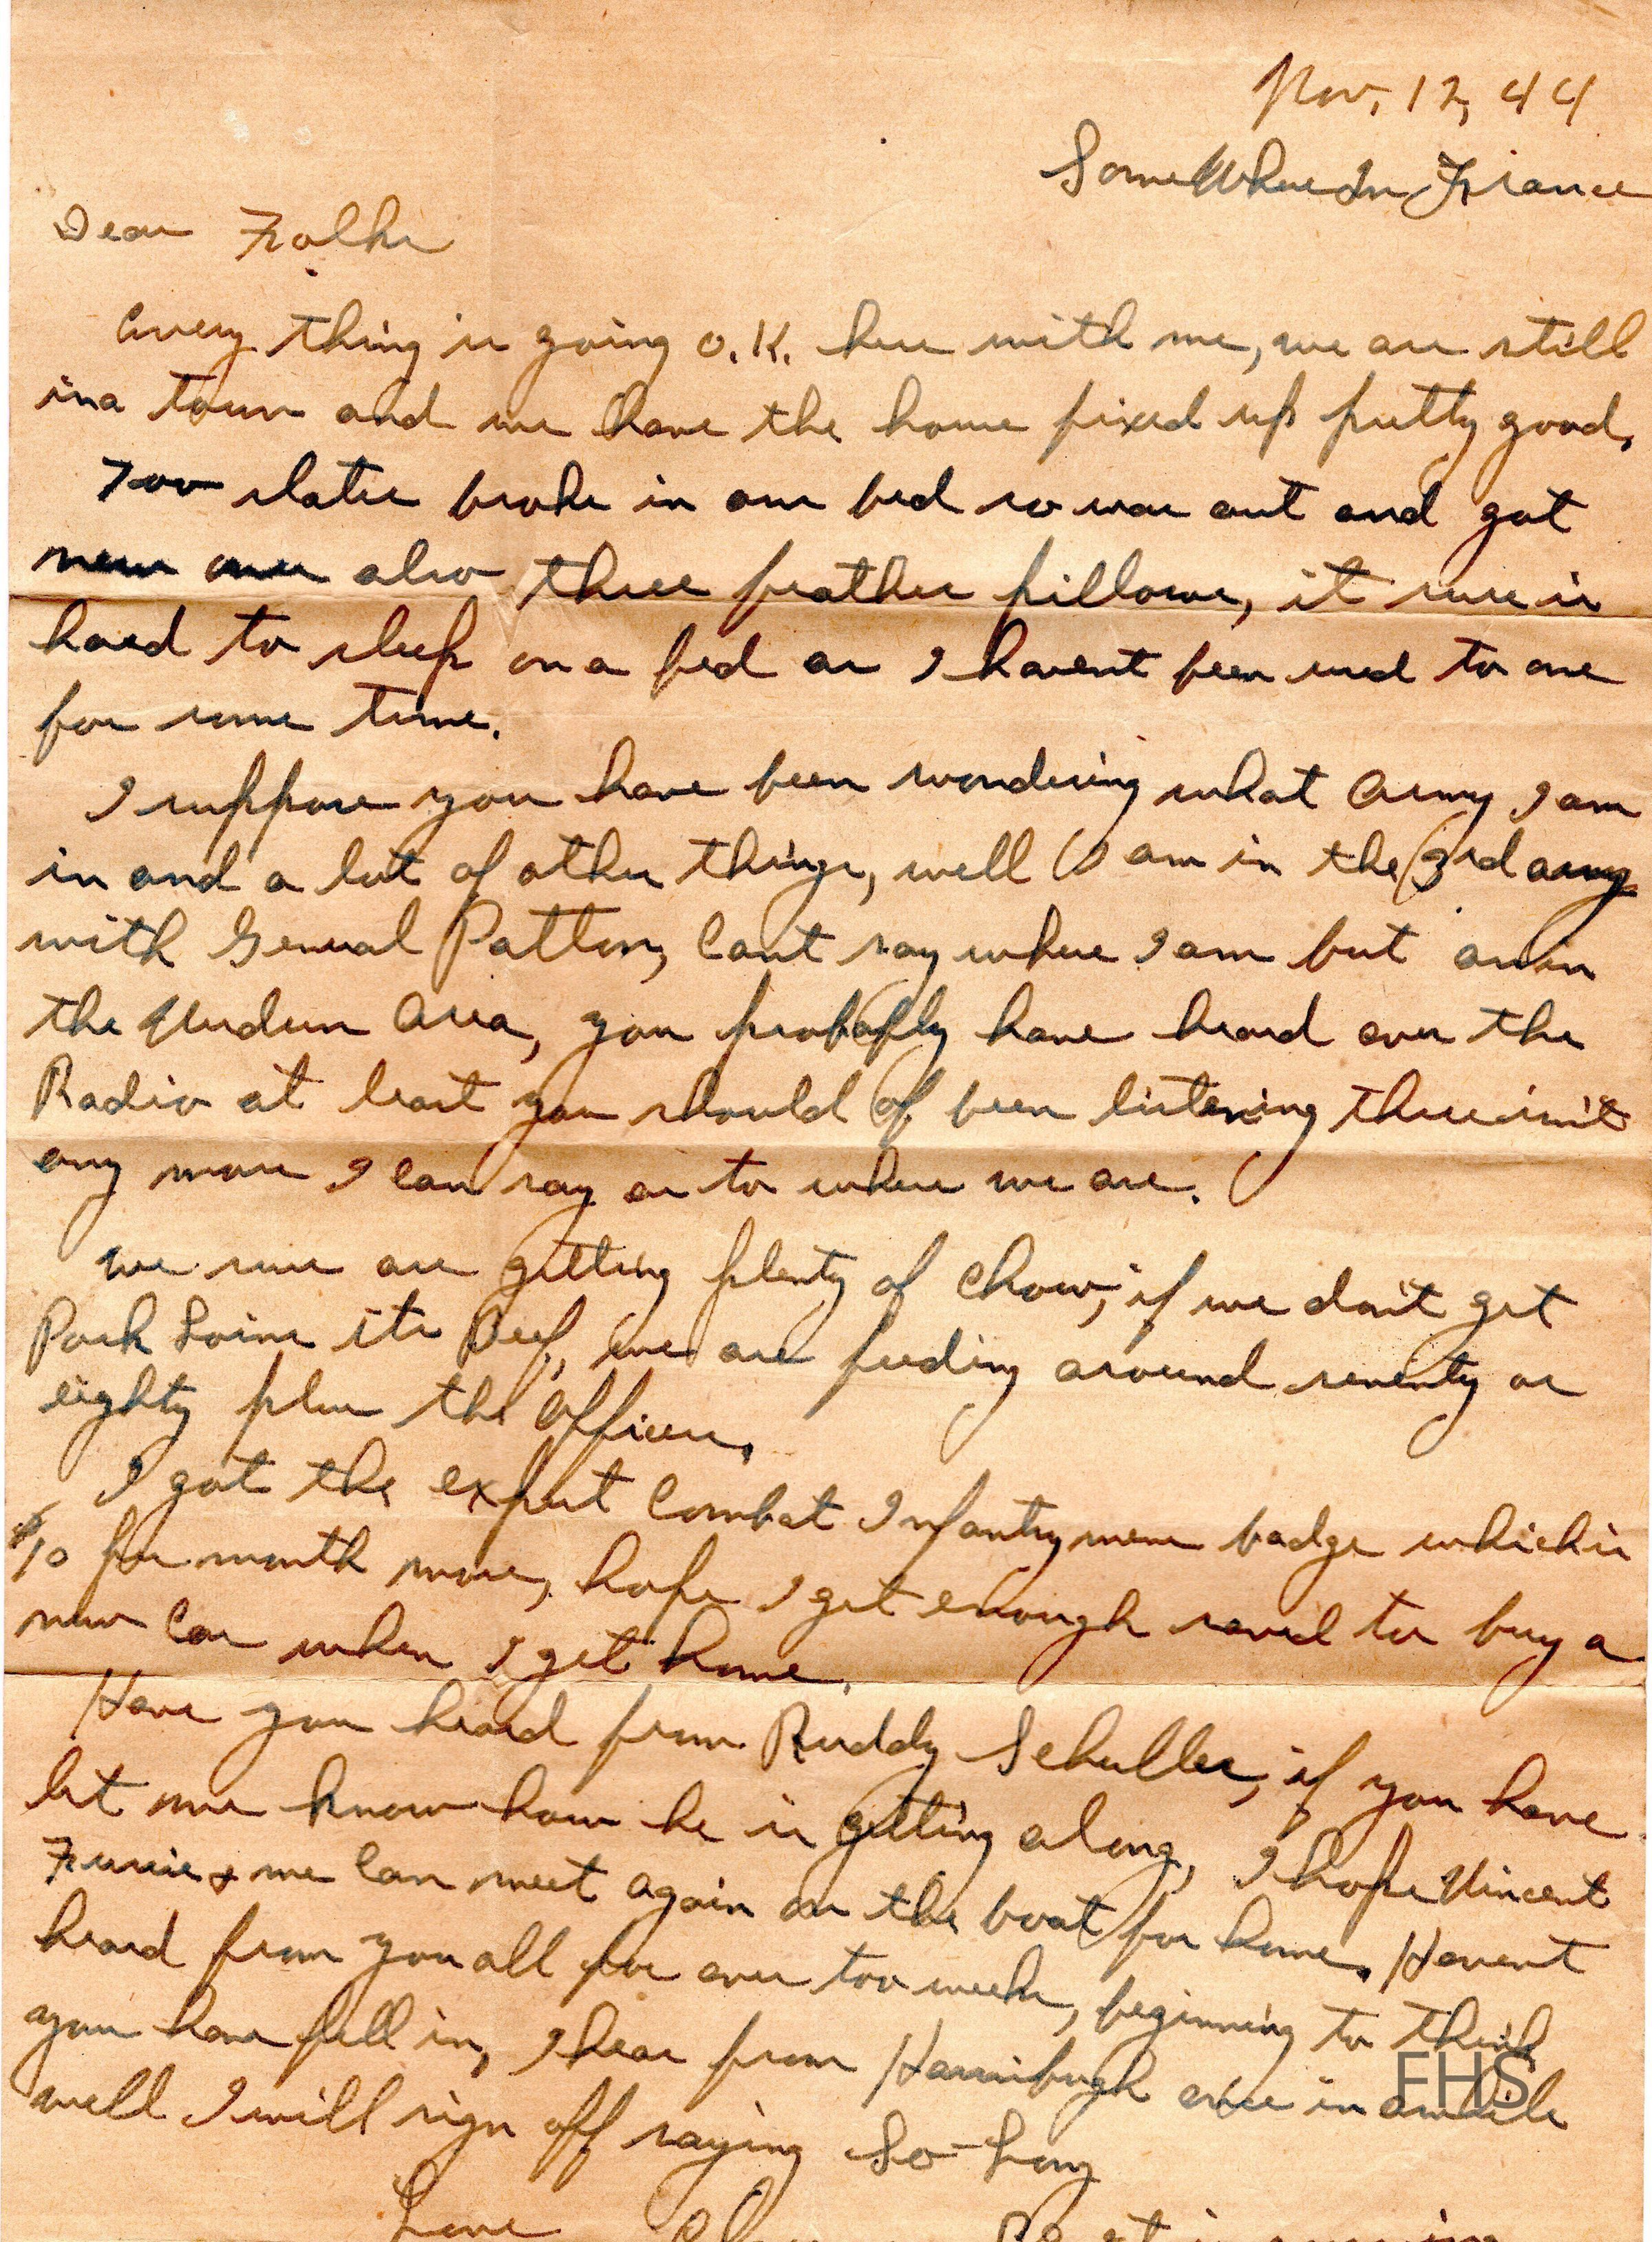 Nov, 12, 44
SomeWhere In France
Dear Folks
Every thing is going O.K. here with me, we are still
in a town and we have the home fixed up pretty good,
Too slates broke in our bed so was out and got
new ones also three feather pillows, it sure is
hard to sleep on a bed as I havent been used to one
for some time.
I suppose you have been wondering what Army I am
in and a lot of other things, well I am in the 3rd army
with General Patton, Cant say where I am but am in
the Verdun Area, you probably have heard over the
Radio at least you should of been listening there isn't
any more I can say as to where we are.
We sure are getting plenty of Chow, if we don't get
Pork Loins its Beef, we are feeding around seventy or
eighty plus the Officers,
I got the expert Combat Infantrymens badge which is
$10 per month more, hope I get enough saved to buy a
new Car when I get home.
Have you heard from Ruddy Schuller, if you have
let me know how he is getting along, I hope Vincent
& me Can meet again on the boat for home, Havent
heard from you all for over too weeks, beginning to think
you have fell in, I hear from Harrisbugh once in awhile
well I will sign off saying So-Long
Love
FHS